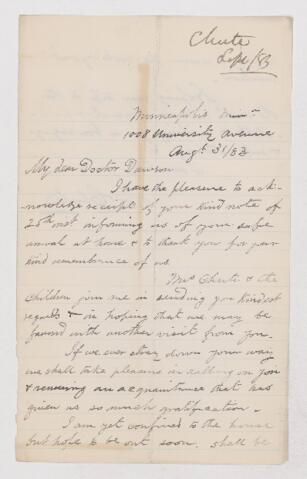 Chute
Sept/83
Minneapolis Minn
1008 University Avenue
Augt 31/83
My dear Doctor Dawson
I have the pleasure to ack-
nowledge receipt of your kind note of
25th inst informing us of your safe
arrival at home & to thank you for your
kind remembrance of us.
Mrs Chute & the
Children join me in sending you kindest
regards & in hoping that we may be
favored with another visit from you.
If we ever stray down your way
we shall take pleasure in calling on you
& renewing an acquaintance that has
given us so much gratification.
I am yet confined to the house
but hope to be out soon. Shall be